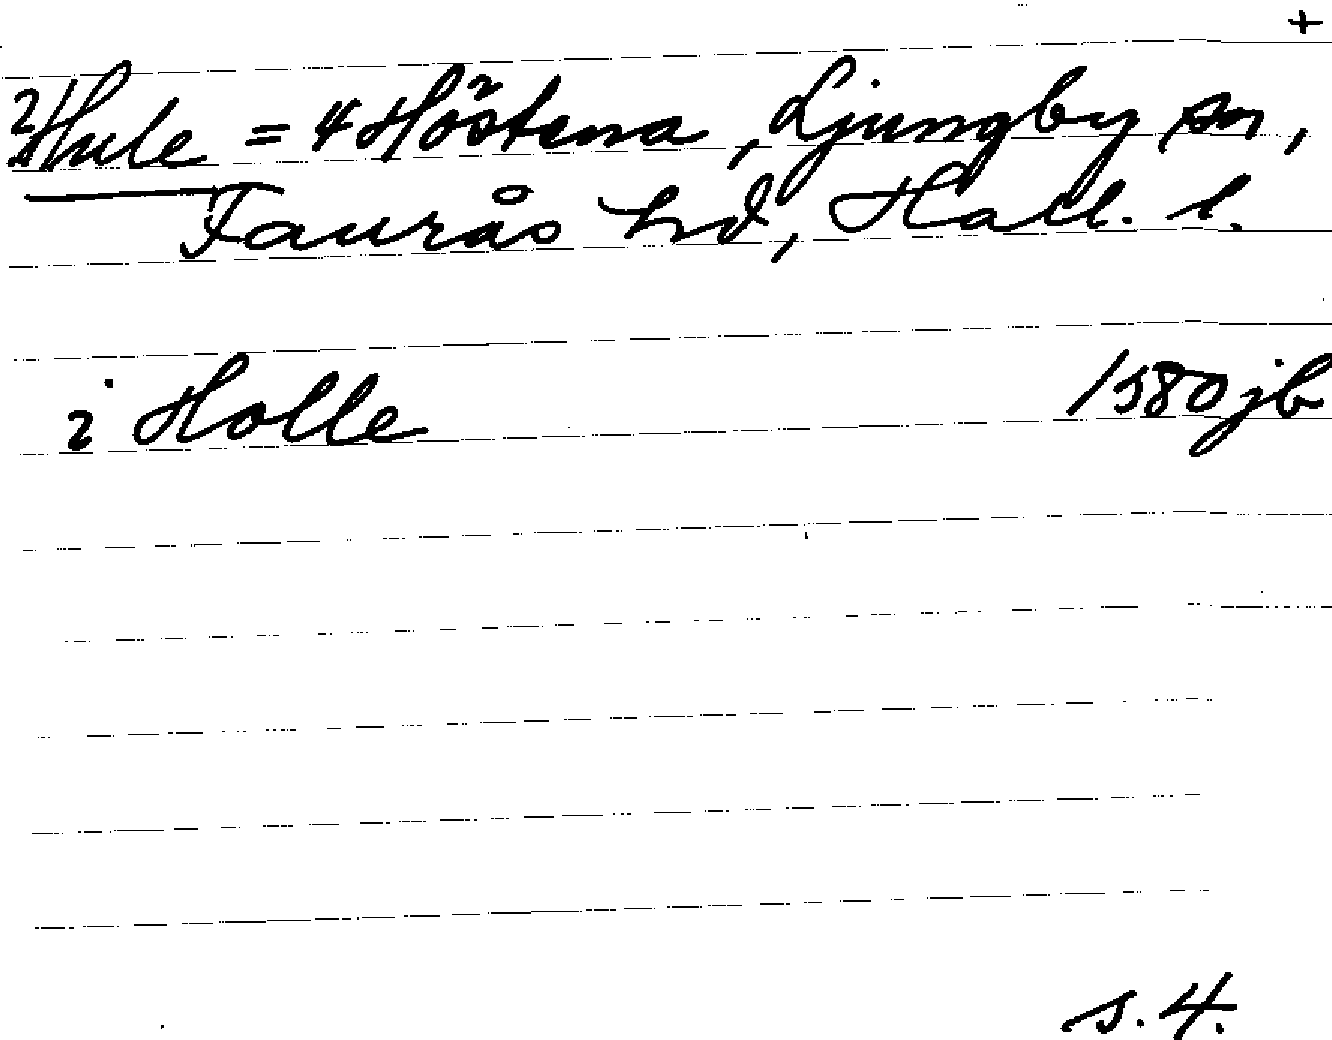 +
2 Hule = 4 Höstena, Ljungby sn,
Faurås hd, Hall. l.
i Holle 1580 jb
s. 4.